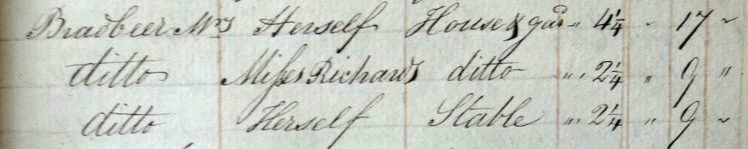 Bradbeer Mrs Herself House & gar " 4¼ " 17 "
ditto Misses Richards ditto " 2¼ " 9 "
ditto Herself Stable " 2¼ " 9 "